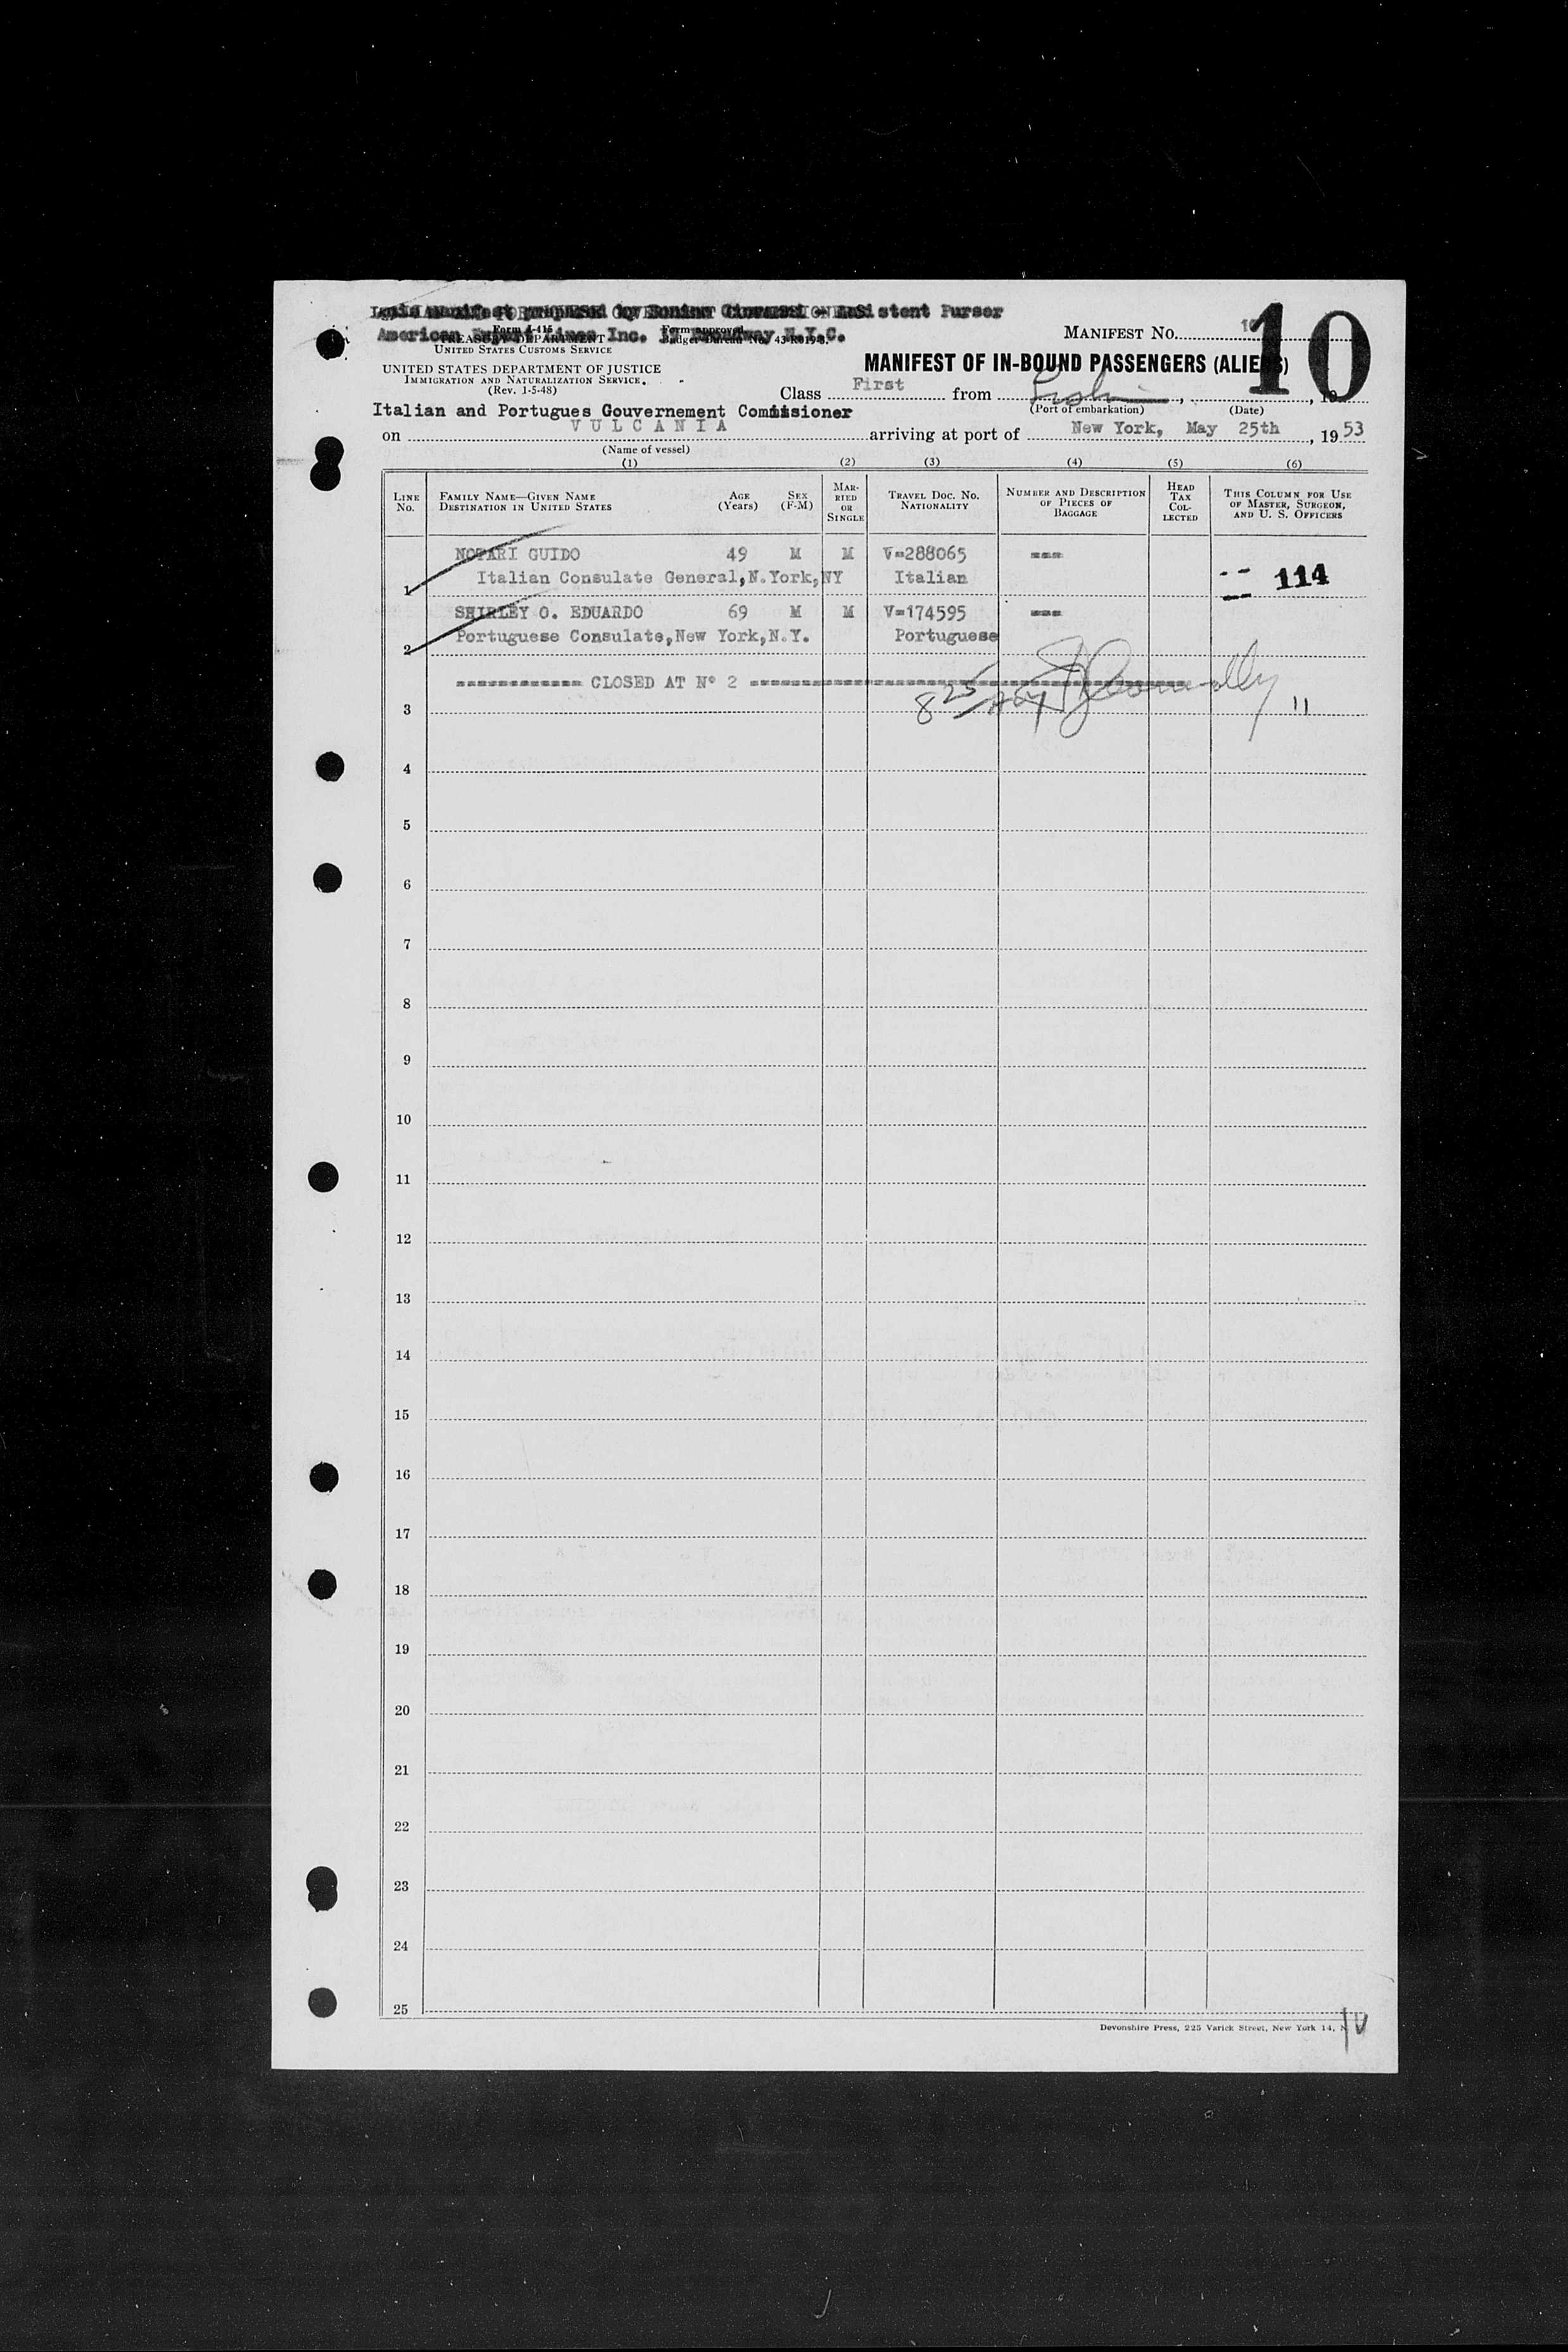 Assistent Purser
American Inc. N.Y.C.
Form I-415
TREASURY DEPARTMENT
Form approved
UNITED STATES CUSTOMS SERVICE
MANIFEST NO. 10
10
UNITED STATES DEPARTMENT OF JUSTICE
IMMIGRATION AND NATURALIZATION SERVICE
(Rev. 1-5-48)
MANIFEST OF IN-BOUND PASSENGERS (ALIENS)
Class First from , , 19
(Port of embarkation) (Date)
Italian and Portugues Gouvernement Commissioner
on VULCANIA arriving at port of New York, May 25th, 1953
(Name of vessel)
(1) (2) (3) (4) (5) (6)
LINE NO. FAMILY NAME—GIVEN NAME DESTINATION IN UNITED STATES AGE (Years) SEX (F-M) MARRIED OR SINGLE TRAVEL DOC. NO. NATIONALITY NUMBER AND DESCRIPTION OF PIECES OF BAGGAGE HEAD TAX COLLECTED THIS COLUMN FOR USE OF MASTER, SURGEON, AND U. S. OFFICERS
NOPARI GUIDO 49 M M V=288065 ===
1 Italian Consulate General, N.York, NY Italian -- 114
SHIRLEY O. EDUARDO 69 M M V=174595 ===
2 Portuguese Consulate, New York, N.Y. Portuguese
============ CLOSED AT Nº 2 ============
3 8 25 11
4
5
6
7
8
9
10
11
12
13
14
15
16
17
18
19
20
21
22
23
24
25
Devonshire Press, 225 Varick Street, New York 14,